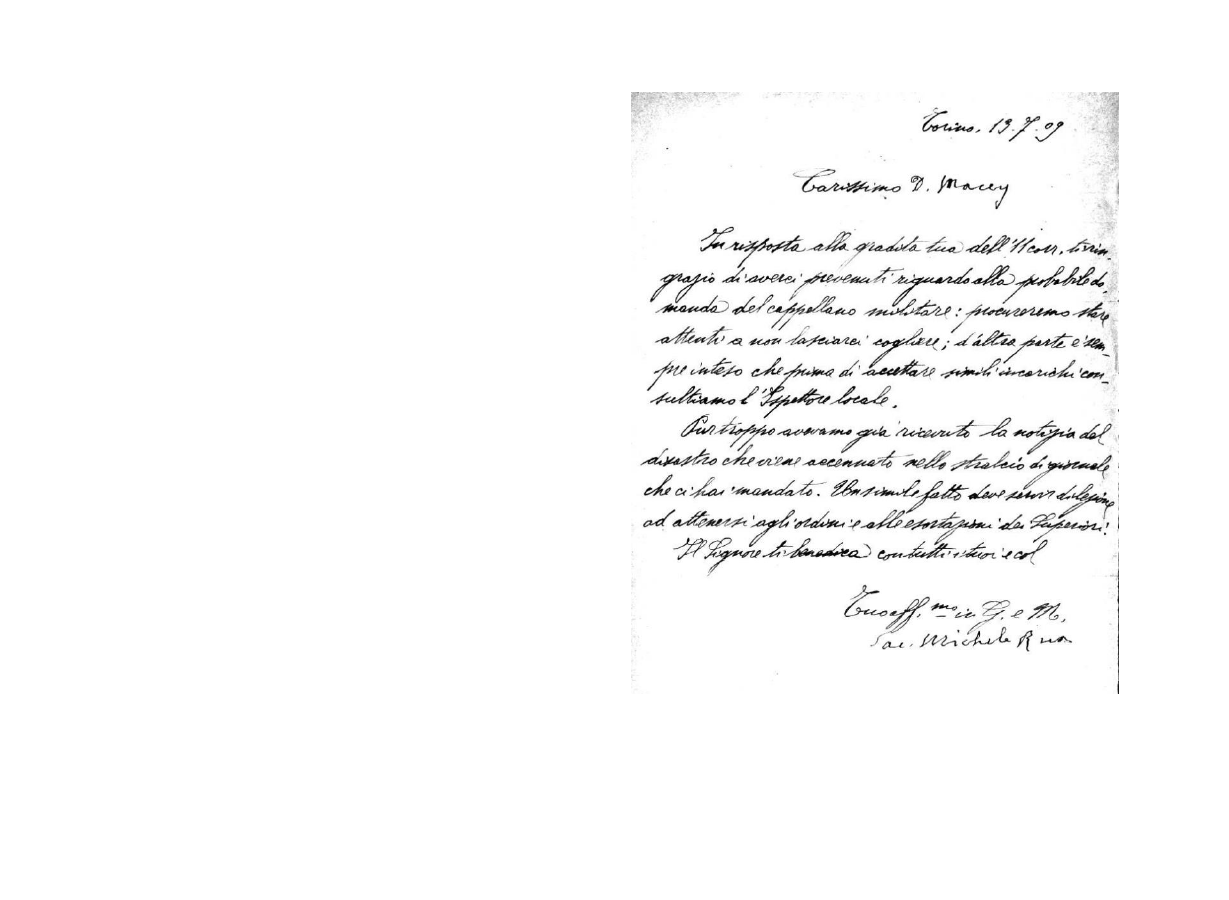 Torino, 13.7.09
Carissimo D. Macey
In risposta alla gradita tua dell'11 corr. ti rin-
grazio di averci prevenuti riguardo alla probabile do-
manda del cappellano militare: procureremo stare
attenti a non lasciarci cogliere; d'altra parte è sem-
pre inteso che prima di accettare simili incarichi con-
sultiamo l'Ispettore locale.
Purtroppo avevamo già ricevuto la notizia del
disastro che viene accennato nello stralcio di giornale
che ci hai mandato. Un simile fatto deve servir di lezione
ad attenersi agli ordini e alle esortazioni dei Superiori!
Il Signore ti benedica con tutti i tuoi e col
Tuo aff.mo in G. e M.
Sac. Michele Rua